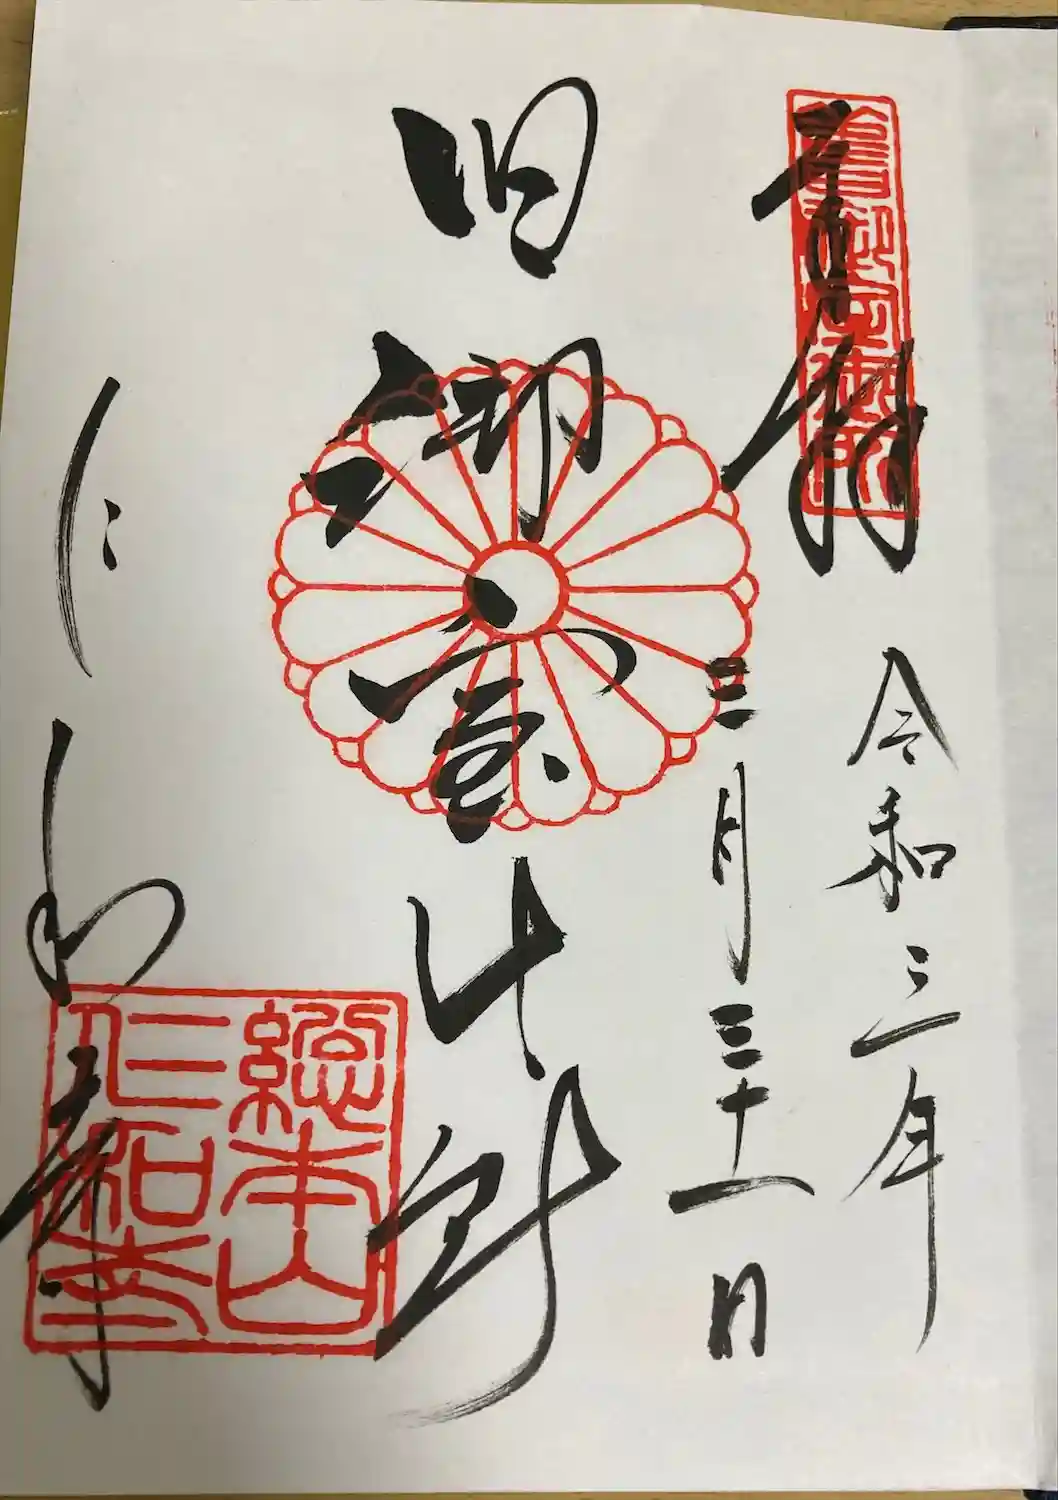 奉拝
舊御室御所
令和三年
三月三十一日
旧御室御所
仁和寺
總本山
仁和寺